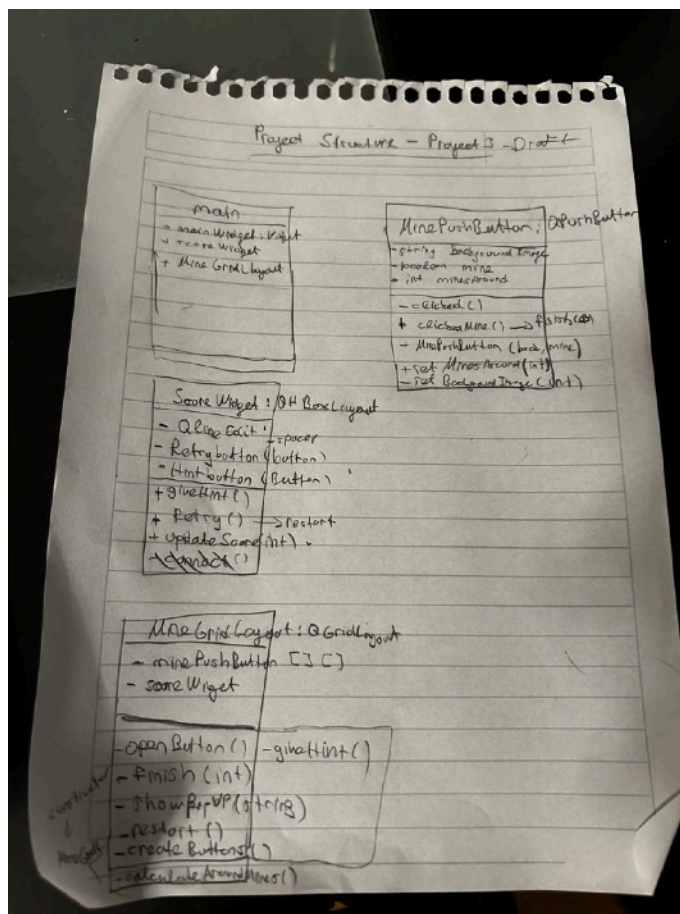 Project Structure - Project 3 - Draft
main
+ mainWidget: Widget
+ scoreWidget
+ MineGridLayout
MinePushButton: QPushButton
- string backgroundImage
- boolean mine
- int minesAround
- clicked()
+ clickedMine() →
- MinePushButton (back, mine)
+ set MinesAround(int)
- set BackgroundImage(int)
Score Widget: QHBoxLayout
- QLineEdit
- spacer
- Retrybutton (button)
- Hintbutton (Button)
+ giveHint()
+ Retry() → restart
+ updateScore(int)
MineGridLayout: QGridLayout
- minePushButton [] []
- scoreWiget
- openButton() - giveHint()
- finish (int)
- showPopUP(string)
- restart()
- createButtons()
- calculateAroundMines()